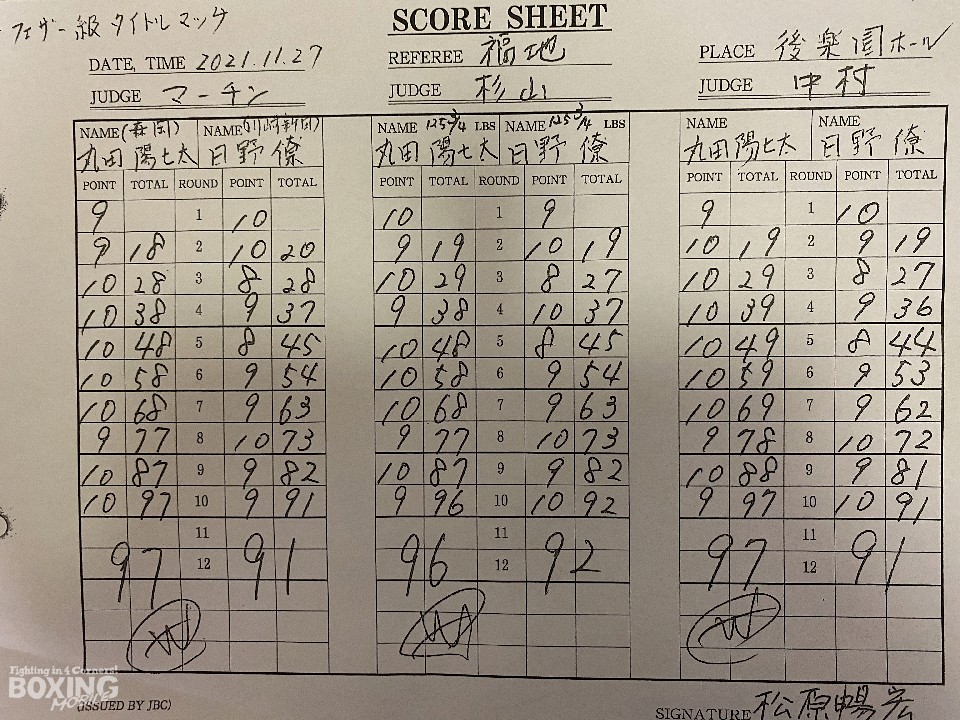 フェザー級タイトルマッチ
SCORE SHEET
DATE, TIME 2021.11.27
REFEREE 福地
PLACE 後楽園ホール
JUDGE マーチン
JUDGE 杉山
JUDGE 中村
NAME (森岡) NAME (川崎新田) NAME 125 3/4 LBS NAME 125 3/4 LBS NAME NAME
丸田 陽七太 日野 僚 丸田 陽七太 日野 僚 丸田陽七太 日野 僚
POINT TOTAL ROUND POINT TOTAL POINT TOTAL ROUND POINT TOTAL POINT TOTAL ROUND POINT TOTAL
9 1 10 10 1 9 9 1 10
9 18 2 10 20 9 19 2 10 19 10 19 2 9 19
10 28 3 8 28 10 29 3 8 27 10 29 3 8 27
10 38 4 9 37 9 38 4 10 37 10 39 4 9 36
10 48 5 8 45 10 48 5 8 45 10 49 5 8 44
10 58 6 9 54 10 58 6 9 54 10 59 6 9 53
10 68 7 9 63 10 68 7 9 63 10 69 7 9 62
9 77 8 10 73 9 77 8 10 73 9 78 8 10 72
10 87 9 9 82 10 87 9 9 82 10 88 9 9 81
10 97 10 9 91 9 96 10 10 92 9 97 10 10 91
11 11 11
97 12 91 96 12 92 97 12 91
W W W
Fighting in 4 Corners!
BOXING
MOBILE
(ISSUED BY JBC)
SIGNATURE 松原暢宏